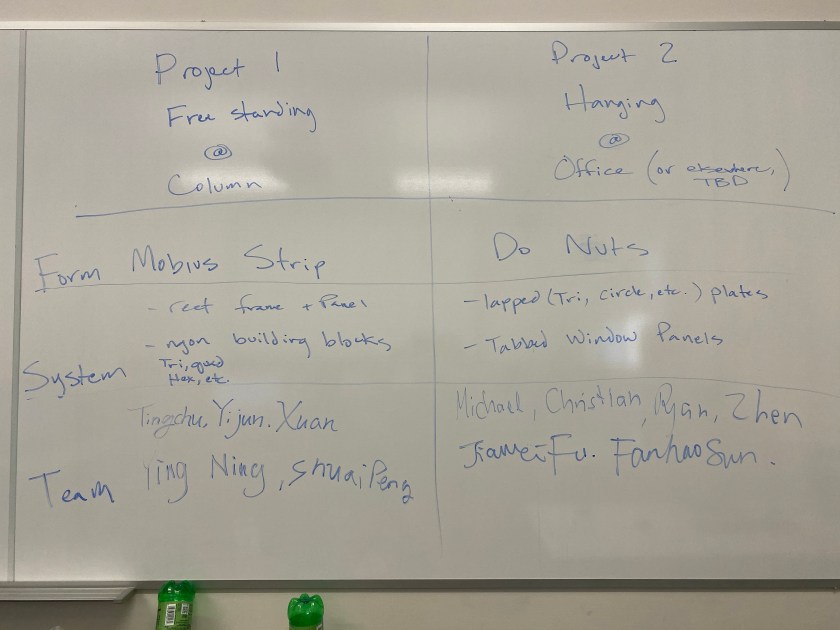 Project 1
Free standing
@
Column
Project 2
Hanging
@
Office (or elsewhere,
TBD)
Form
Mobius Strip
- rect frame + Panel
- ngon building blocks
Tri, quad
Hex, etc.
System
Do Nuts
- lapped (Tri, circle, etc.) plates
- Tabbed Window Panels
Tingchu, Yijun. Xuan
Ying Ning, Shuai Peng
Team
Michael, Christian, Ryan, Zhen
Jiawei Fu. Fanhao Sun.